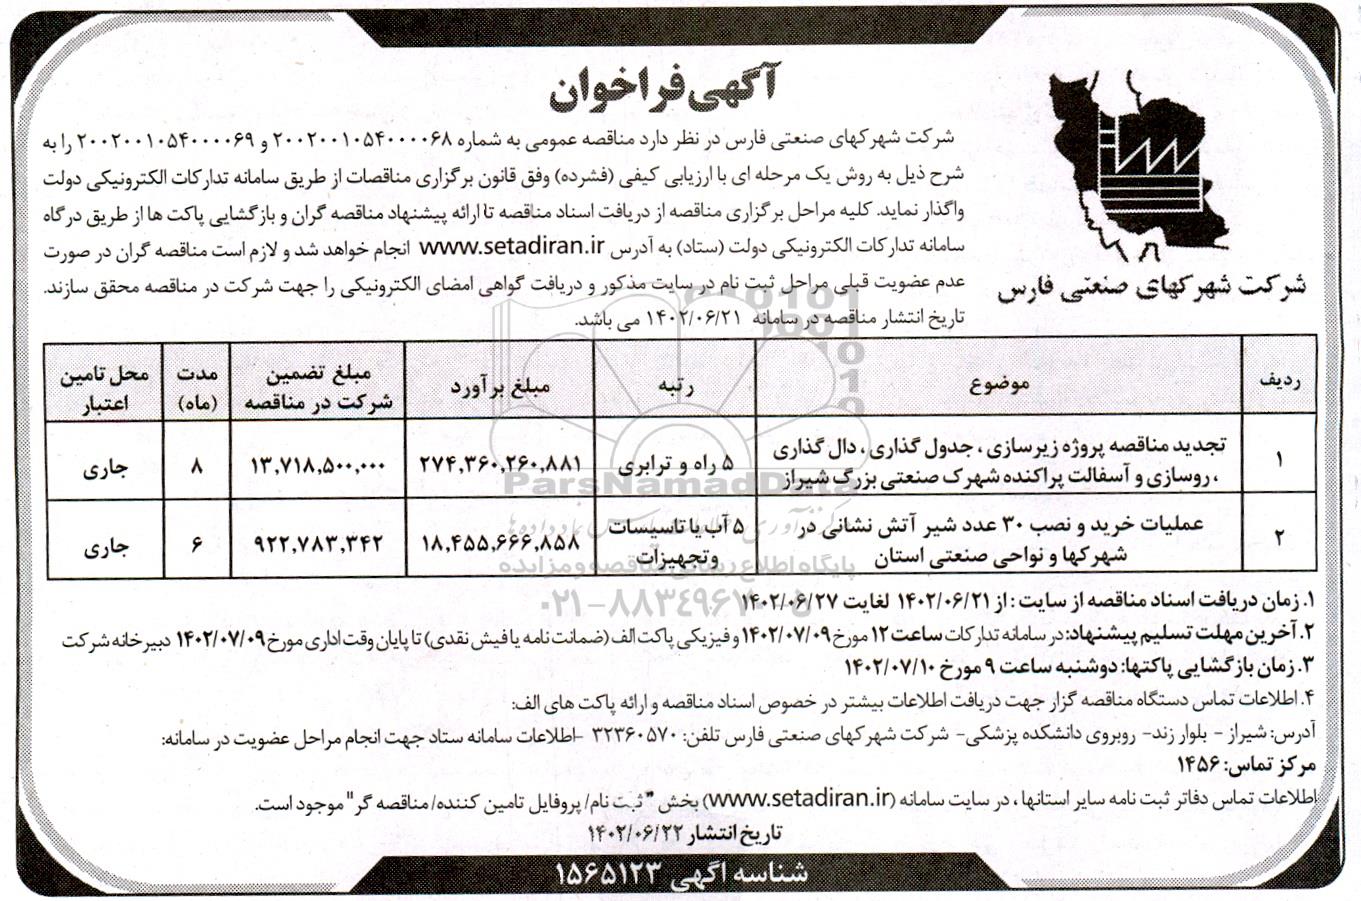 آگهی فراخوان
شرکت شهرکهای صنعتی فارس
شرکت شهرکهای صنعتی فارس در نظر دارد مناقصه عمومی به شماره ۲۰۰۲۰۰۱۰۵۴۰۰۰۰۶۸ و ۲۰۰۲۰۰۱۰۵۴۰۰۰۰۶۹ را به
شرح ذیل به روش یک مرحله ای با ارزیابی کیفی (فشرده) وفق قانون برگزاری مناقصات از طریق سامانه تدارکات الکترونیکی دولت
واگذار نماید. کلیه مراحل برگزاری مناقصه از دریافت اسناد مناقصه تا ارائه پیشنهاد مناقصه گران و بازگشایی پاکت ها از طریق درگاه
سامانه تدارکات الکترونیکی دولت (ستاد) به آدرس www.setadiran.ir انجام خواهد شد و لازم است مناقصه گران در صورت
عدم عضویت قبلی مراحل ثبت نام در سایت مذکور و دریافت گواهی امضای الکترونیکی را جهت شرکت در مناقصه محقق سازند.
تاریخ انتشار مناقصه در سامانه ۱۴۰۲/۰۶/۲۱ می باشد.
ردیف موضوع رتبه مبلغ برآورد مبلغ تضمین شرکت در مناقصه مدت (ماه) محل تامین اعتبار
۱ تجدید مناقصه پروژه زیرسازی ، جدول گذاری ، دال گذاری ، روسازی و آسفالت پراکنده شهرک صنعتی بزرگ شیراز ۵ راه و ترابری ۲۷۴,۳۶۰,۲۶۰,۸۸۱ ۱۳,۷۱۸,۵۰۰,۰۰۰ ۸ جاری
۲ عملیات خرید و نصب ۳۰ عدد شیر آتش نشانی در شهرکها و نواحی صنعتی استان ۵ آب یا تاسیسات وتجهیزات ۱۸,۴۵۵,۶۶۶,۸۵۸ ۹۲۲,۷۸۳,۳۴۲ ۶ جاری
ParsNamadData
پایگاه اطلاع رسانی مناقصه و مزایده
۱. زمان دریافت اسناد مناقصه از سایت : از ۱۴۰۲/۰۶/۲۱ لغایت ۱۴۰۲/۰۶/۲۷
۲. آخرین مهلت تسلیم پیشنهاد: در سامانه تدارکات ساعت ۱۲ مورخ ۱۴۰۲/۰۷/۰۹ و فیزیکی پاکت الف (ضمانت نامه یا فیش نقدی) تا پایان وقت اداری مورخ ۱۴۰۲/۰۷/۰۹ دبیرخانه شرکت
۳. زمان بازگشایی پاکتها: دوشنبه ساعت ۹ مورخ ۱۴۰۲/۰۷/۱۰
۴. اطلاعات تماس دستگاه مناقصه گزار جهت دریافت اطلاعات بیشتر در خصوص اسناد مناقصه و ارائه پاکت های الف:
آدرس: شیراز - بلوار زند- روبروی دانشکده پزشکی- شرکت شهرکهای صنعتی فارس تلفن: ۳۲۳۶۰۵۷۰ -اطلاعات سامانه ستاد جهت انجام مراحل عضویت در سامانه:
مرکز تماس: ۱۴۵۶
اطلاعات تماس دفاتر ثبت نامه سایر استانها ، در سایت سامانه (www.setadiran.ir) بخش "ثبت نام/ پروفایل تامین کننده/ مناقصه گر" موجود است.
تاریخ انتشار ۱۴۰۲/۰۶/۲۲
شناسه آگهی ۱۵۶۵۱۲۳